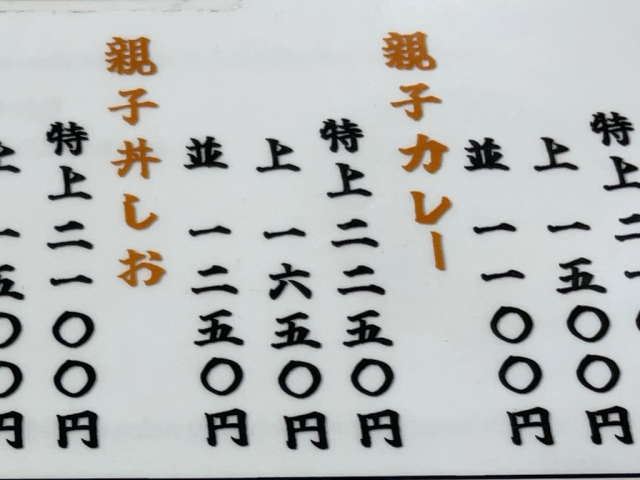 特上
上 一五〇〇円
並 一一〇〇円
親子カレー
特上 二二五〇円
上 一六五〇円
並 一二五〇円
親子丼しお
特上 二一〇〇円
上 一五〇〇円